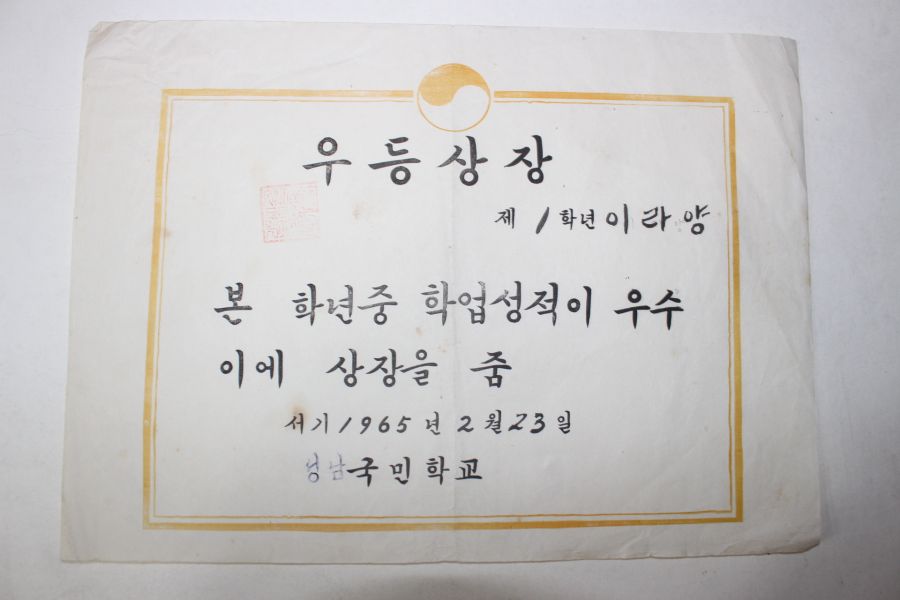 우등상장
제 1 학년 이라양
본 학년중 학업성적이 우수
이에 상장을 줌
서기 1965 년 2 월 23 일
성남 국민학교